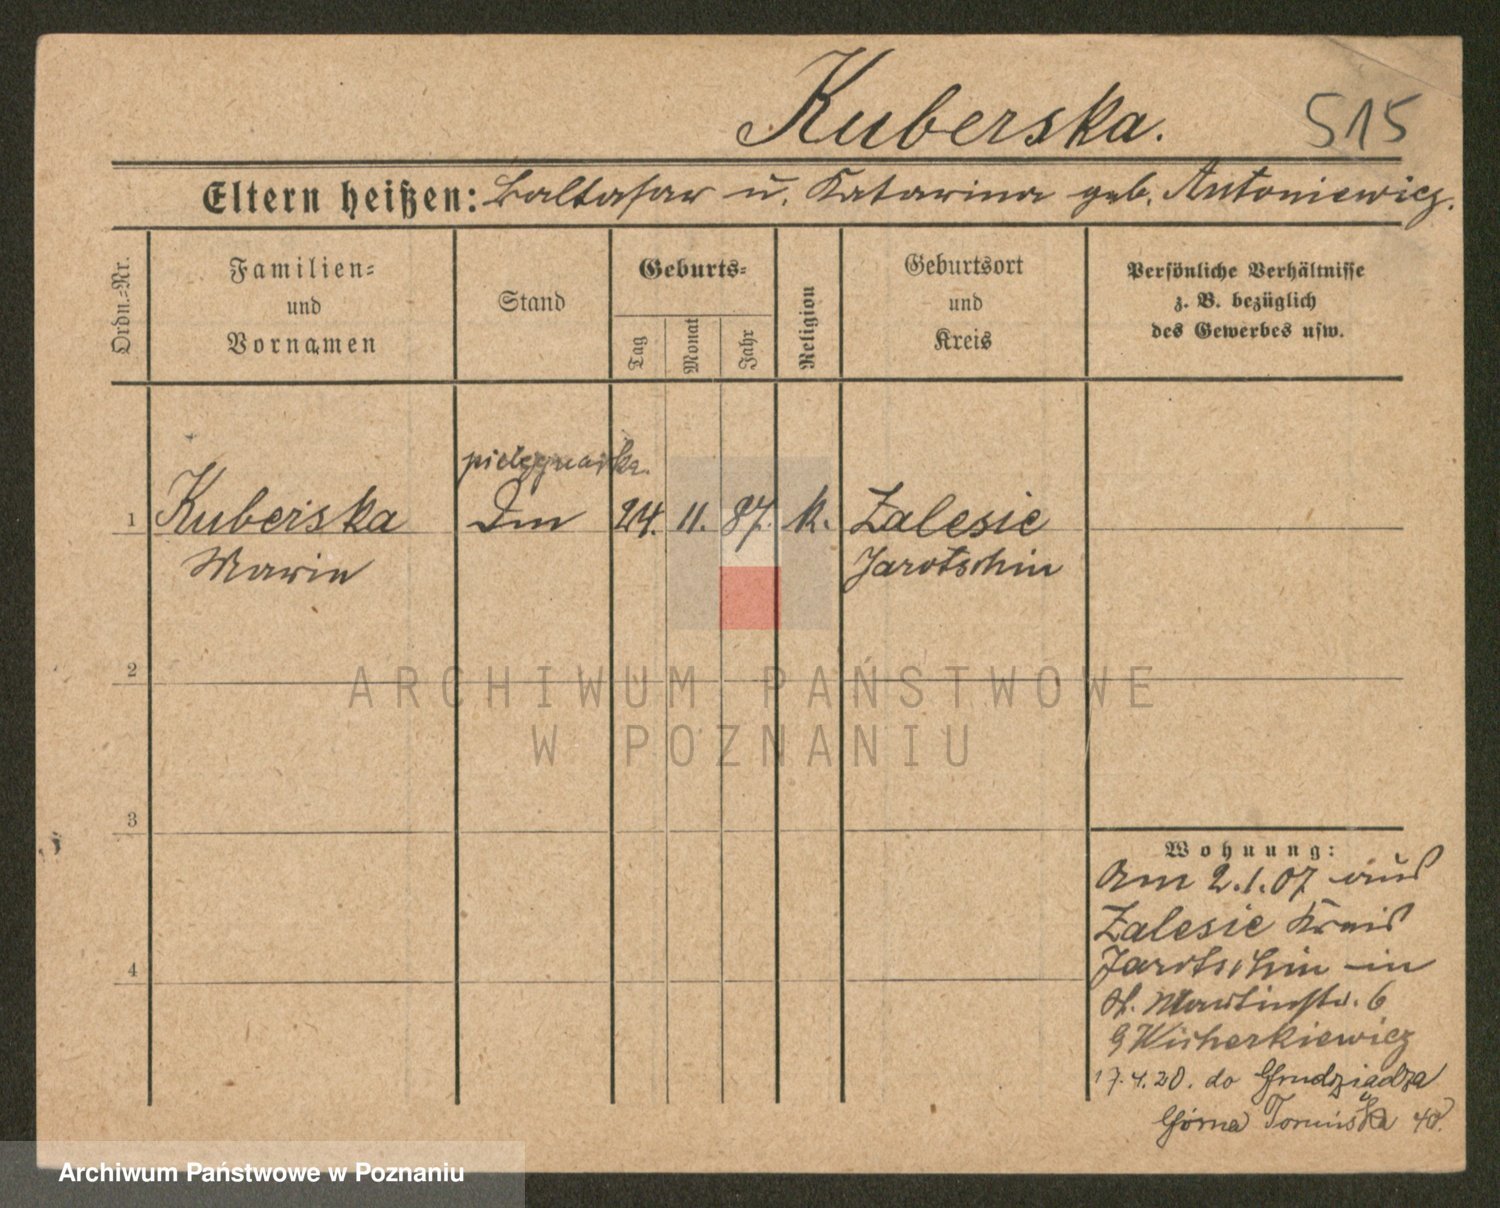 Kuberska.
515
Eltern heißen: Baltasar u. Katarina geb. Antoniewicz.
Ordn.=Nr.
Familien=
und
Vornamen
Stand
Geburts=
Tag
Monat
Jahr
Religion
Geburtsort
und
Kreis
Persönliche Verhältnisse
z. B. bezüglich
des Gewerbes usw.
pielęgniarka.
1 Kuberska Dm 24. 11. 87. k. Zalesie
Marie Jarotschin
2
3
4
Wohnung:
Am 2.1.07 aus
Zalesie Kreis
Jarotschin in
St. Martinstr. 6
Wicherkiewicz
17.4.20. do Grudziądza
Górna Toruńska 40.
ARCHIWUM PAŃSTWOWE
W POZNANIU
Archiwum Państwowe w Poznaniu